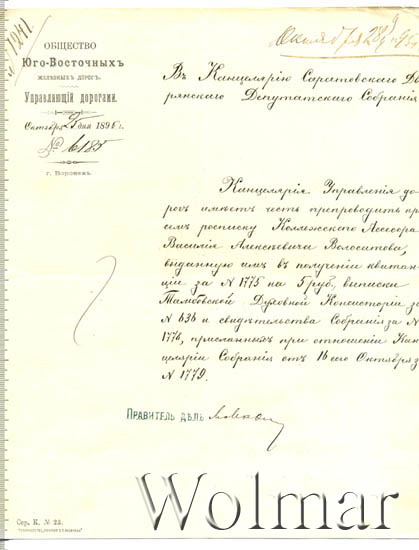 № 1241
Октября 28 дня 98 г.
ОБЩЕСТВО
Юго-Восточныхъ
ЖЕЛѢЗНЫХЪ ДОРОГЪ.
Управляющій дорогами.
Октября 25 дня 1898 г.
№ 6185
г. Воронежъ.
Въ Канцелярію Саратовскаго Дво
рянскаго Депутатскаго Собранія
Канцелярія Управленія до
рогъ имѣетъ честь препроводить при
семъ росписку Коллежскаго Ассесора
Василія Алексѣевича Волосатова,
выданную имъ въ полученіи квитан
ціи за № 1775 на 5 руб., выписки
Тамбовской Духовной Консисторіи за
№ 636 и свидѣтельства Собранія за №
1776, присланныхъ при отношеніи Кан
целяріи Собранія отъ 16 сего Октября за
№ 1779.
ПРАВИТЕЛЬ ДѢЛЪ
Wolmar
Сер. К. № 23.